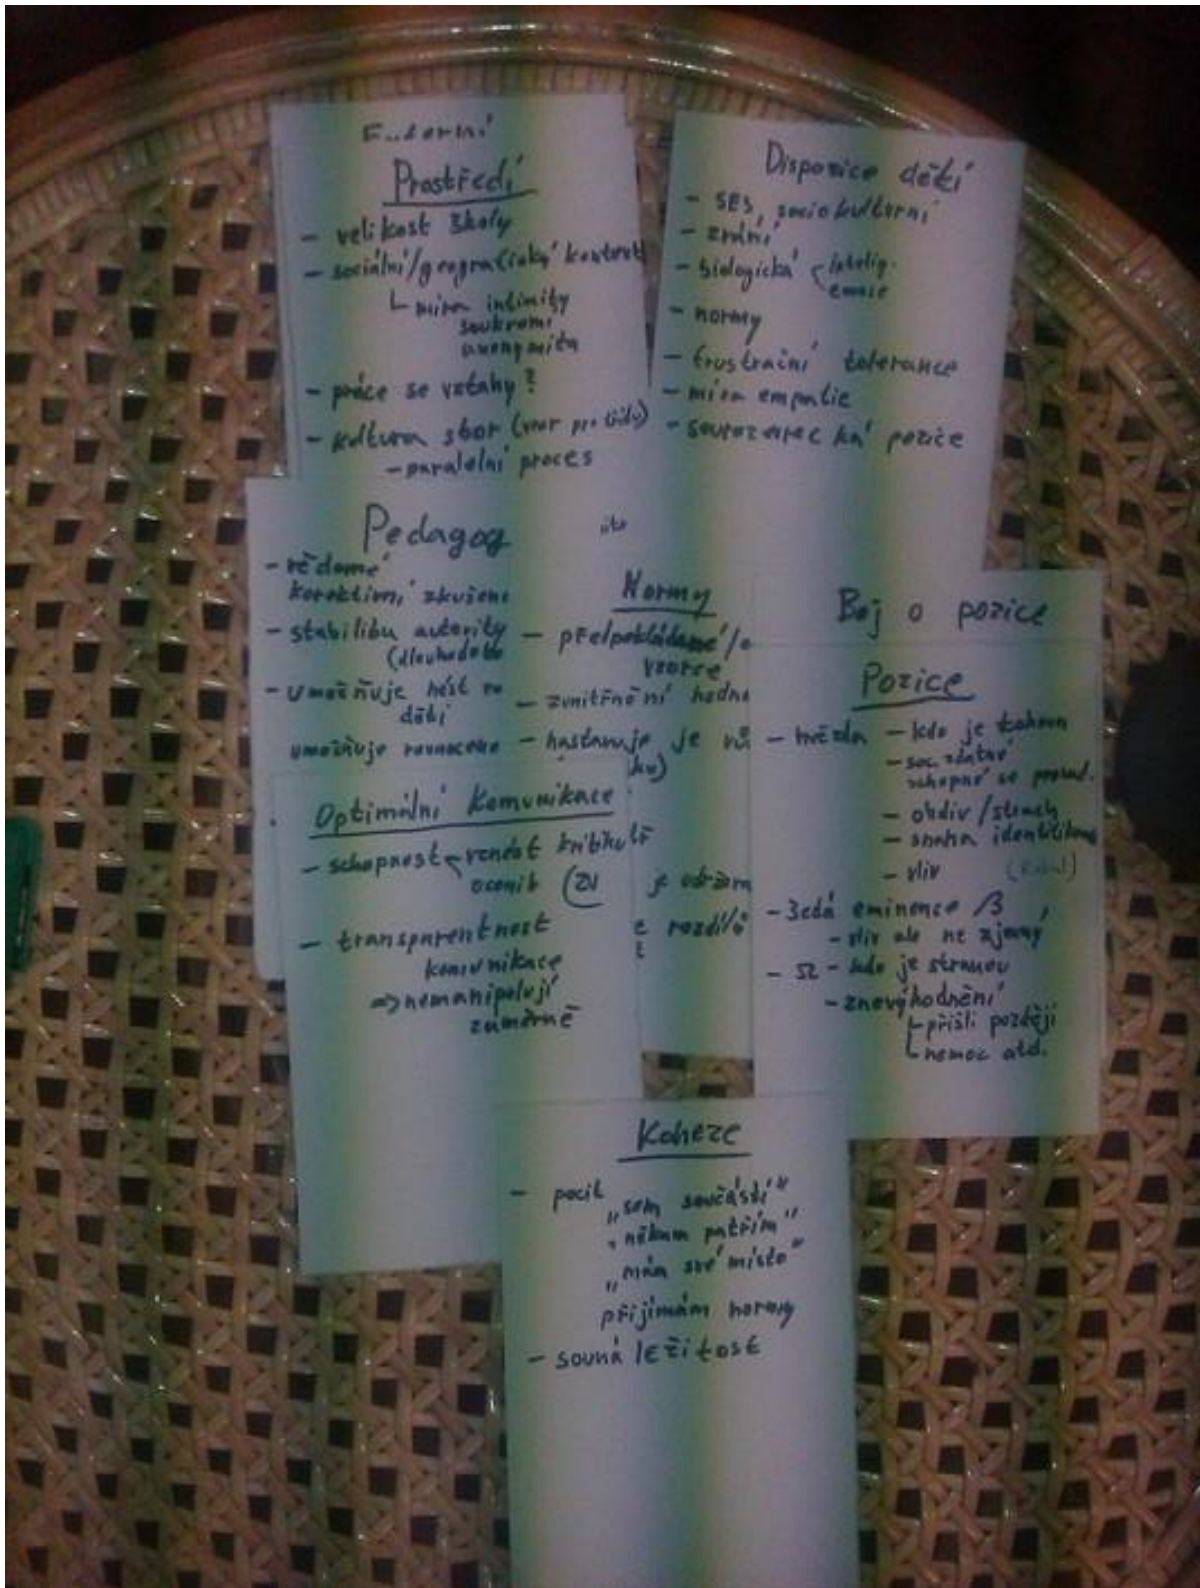 Prostředí
- velikost školy
- sociální/geografický kontext
└ míra intimity
soukromí
anonymita
- práce se vztahy?
- kultura sbor (vzor pro třídu)
- paralelní proces
Dispozice dětí
- SES, sociokulturní
- zrání
- biologická < intelig.
emoce
- normy
- frustrační tolerance
- míra empatie
- sourozenecká pozice
Pedagog
- vědomé
korektivní zkušeno
- stabilitu autority
(dlouhodobě
- umožňuje nést
děti
umožňuje rovnocenn
Normy
- předpokládané/o
vzorce
- zvnitřnění hodno
- nastavuje je
Boj o pozice
Pozice
- hvězda - kdo je tahoun
- soc. zdatné
schopné se prosad.
- obdiv/strach
- snaha identifikova
- vliv
- šedá eminence /β
- vliv ale ne zjevný
- Ω - kdo je stranou
- znevýhodnění
└ přišli později
└ nemoc atd.
Optimální komunikace
- schopnost < vznést kritiku
ocenit
je odrazem
rozdílů
- transparentnost
komunikace
=> nemanipulují
záměrně
Koheze
- pocit „sem součástí"
„někam patřím"
„mám své místo"
přijímám normy
- sounáležitost